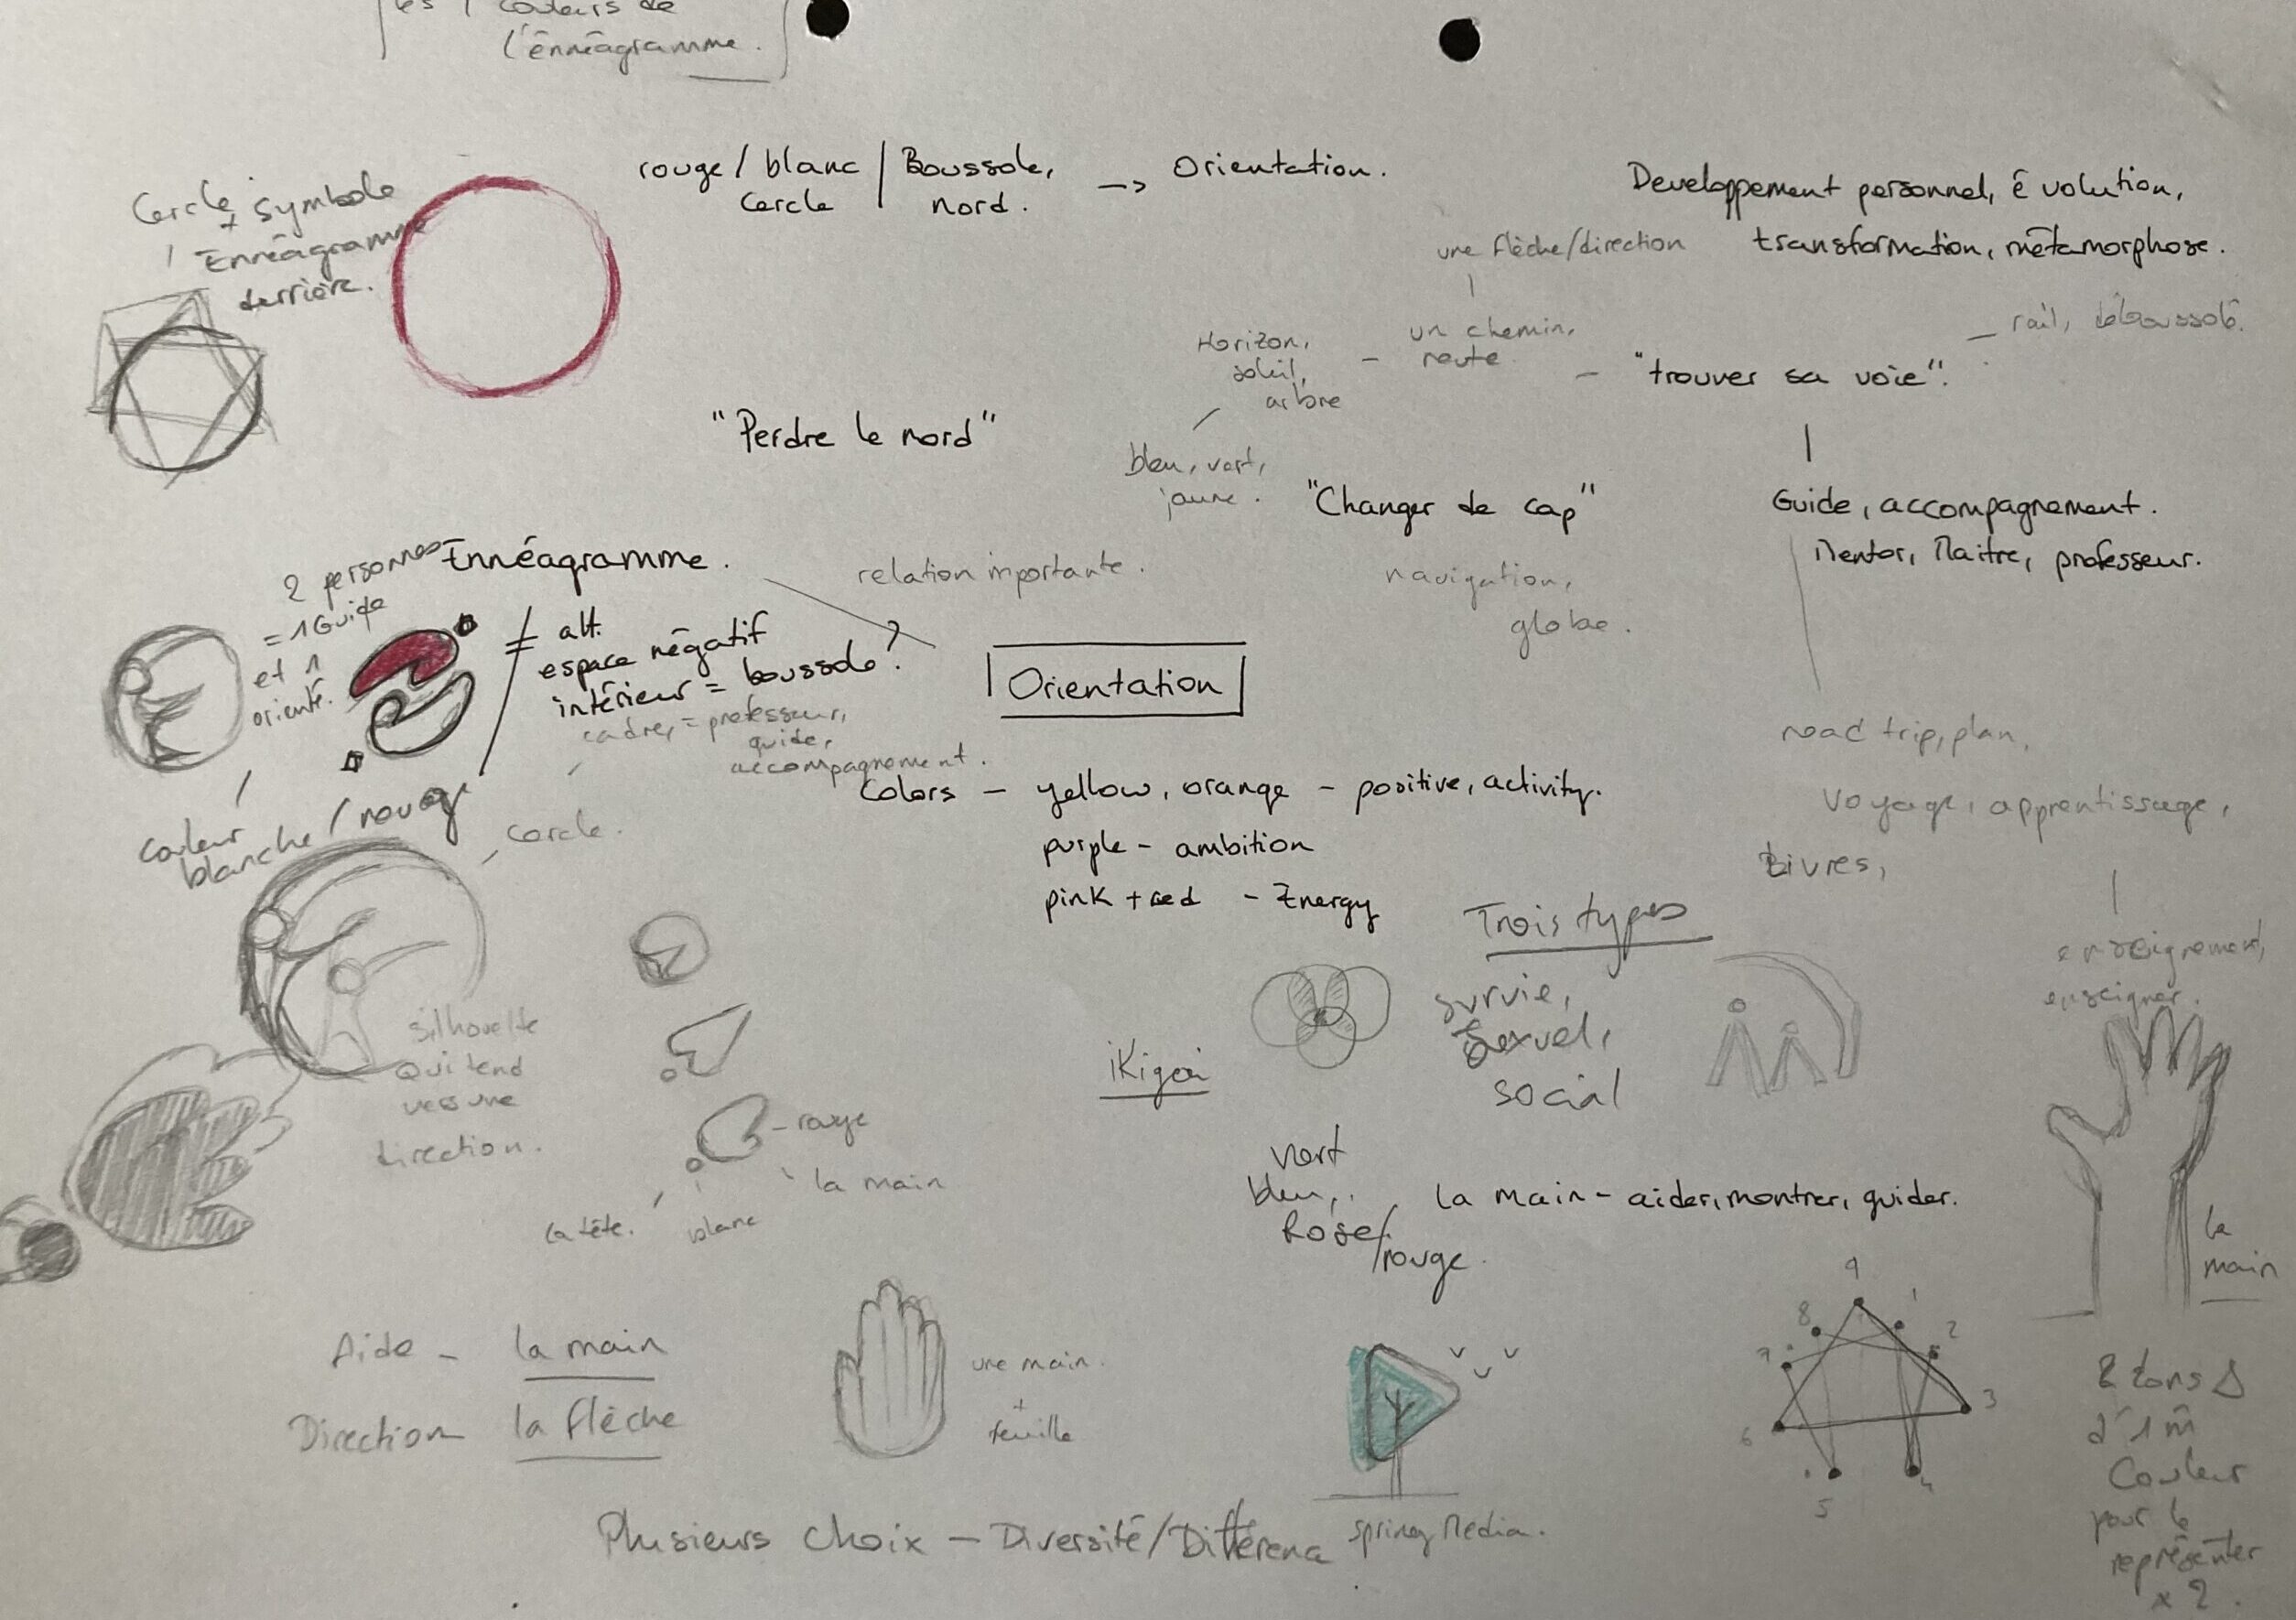 couleurs de
l'énnéagramme.
Cercle
+ symbole
Ennéagramme
derrière.
rouge / blanc / Boussole, -> Orientation.
cercle nord.
Developpement personnel, évolution,
transformation, métamorphose.
une flèche/direction
un chemin,
route
Horizon,
soleil,
arbre
bleu, vert,
jaune.
- "trouver sa voie".
- rail, déboussolé.
"Perdre le nord"
"Changer de cap"
navigation,
globe.
Guide, accompagnement.
Mentor, Maitre, professeur.
Ennéagramme.
relation importante.
2 personnes
= 1 Guide
et 1
orienté.
≠ alt.
espace négatif
intérieur = boussole?
cadre, = professeur,
guide,
accompagnement.
couleur
blanche / rouge
cercle.
Orientation
Colors - yellow, orange - positive, activity.
purple - ambition
pink + red - Energy
road trip, plan,
voyage, apprentissage,
Livres,
enseignement,
enseigner.
Trois types
survie,
sexuel,
social
iKigai
silhouette
qui tend
vers une
direction.
- rouge
la main
la tête.
blanc
vert
bleu,
Rose/
rouge.
la main - aider, montrer, guider.
la
main
Aide - la main
Direction la flèche
une main.
+
feuille
Spring Media.
9
8
1
2
7
3
6
5
4
2 tons
d'1 m
Couleur
pour le
représenter
x 2.
Plusieurs choix - Diversité/Différenc